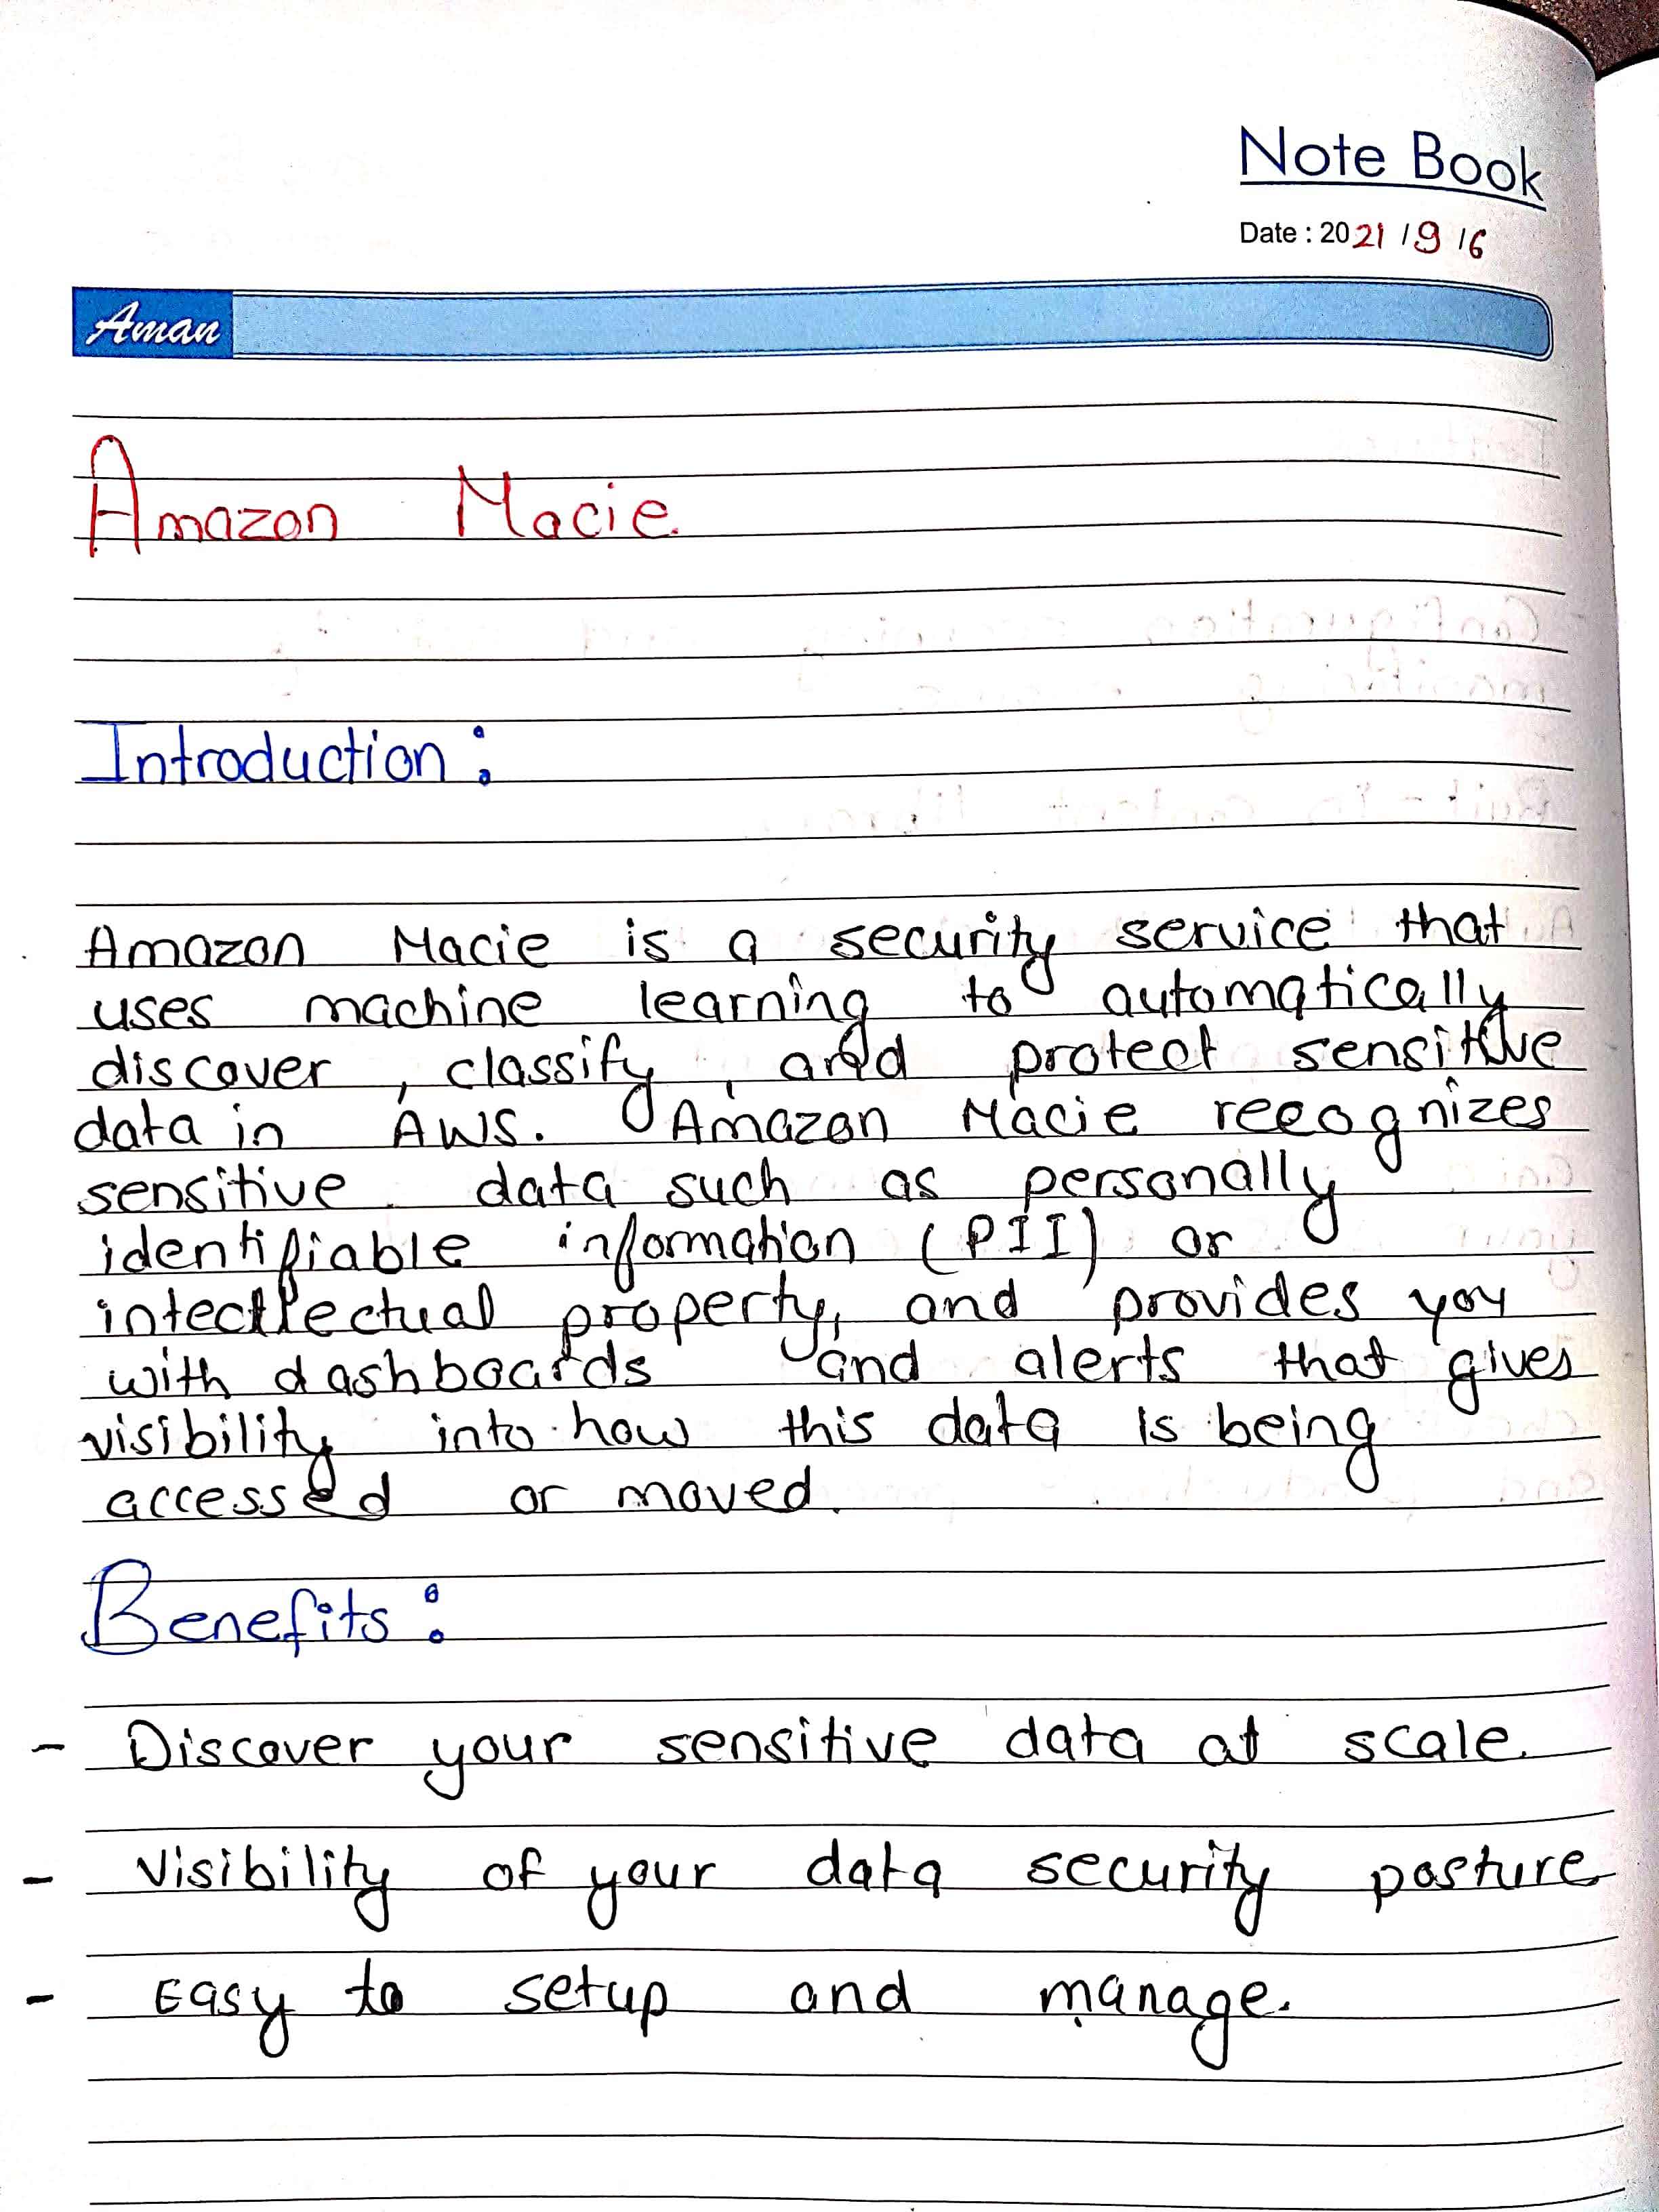 Note Book
Date : 2021 / 9 / 6
Aman
Amazon Macie
Introduction :
Amazon Macie is a security service that
uses machine learning to automatically
discover , classify , and protect sensitive
data in AWS. Amazon Macie recognizes
sensitive data such as personally
identifiable information (PII) or
intectllectual property, and provides you
with dashboards and alerts that gives
visibility into how this data is being
accessed or moved.
Benefits :
- Discover your sensitive data at scale.
- Visibility of your data security posture
- Easy to setup and manage.